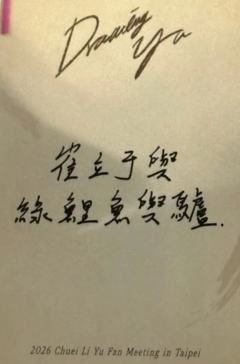 Drawing
Yu
崔立于與
綠鯉魚與驢.
2026 Chuei Li Yu Fan Meeting in Taipei